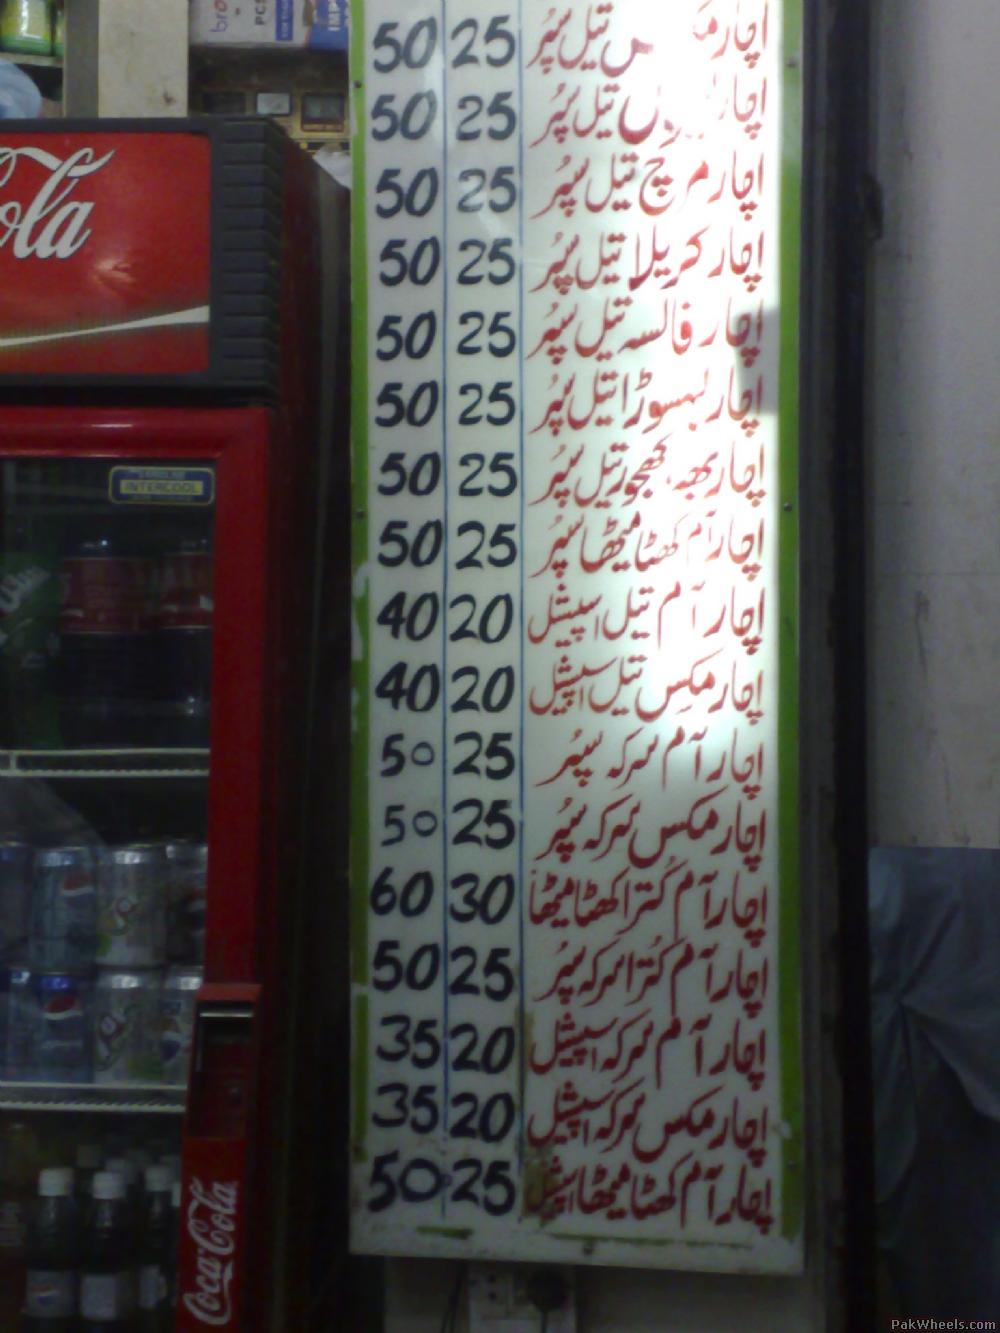 اچار مکس تیل سپر 25 50
اچار تیل سپر 25 50
اچار مرچ تیل سپر 25 50
اچار کریلا تیل سپر 25 50
اچار فالسہ تیل سپر 25 50
اچار لہسوڑا تیل سپر 25 50
اچار بھہ، کھجور تیل سپر 25 50
اچار آم کھٹا میٹھا سپر 25 50
اچار آم تیل اسپیشل 20 40
اچار مکس تیل اسپیشل 20 40
اچار آم سرکہ سپُر 25 50
اچار مکس سرکہ سپُر 25 50
اچار آم کُترا کھٹا میٹھا 30 60
اچار آم کُترا سرکہ سپُر 25 50
اچار آم سرکہ اسپیشل 20 35
اچار مکس سرکہ اسپیشل 20 35
اچار آم کھٹا میٹھا اسپیشل 25 50
Cola
INTERCOOL
Coca-Cola
PakWheels.com